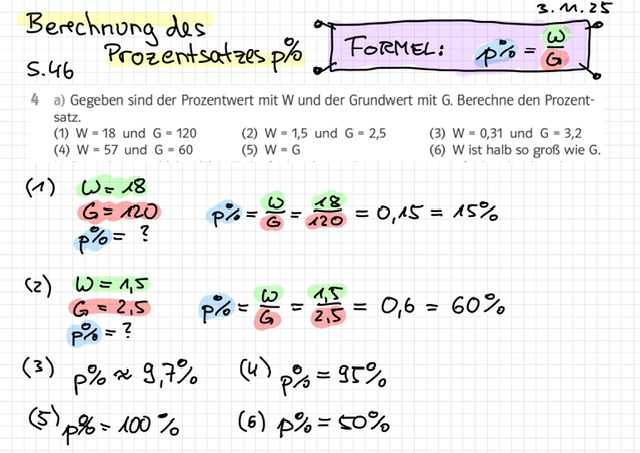 3.11.25
Berechnung des
Prozentsatzes p%
S.46
FORMEL: p% = W/G
4 a) Gegeben sind der Prozentwert mit W und der Grundwert mit G. Berechne den Prozent-
satz.
(1) W = 18 und G = 120 (2) W = 1,5 und G = 2,5 (3) W = 0,31 und G = 3,2
(4) W = 57 und G = 60 (5) W = G (6) W ist halb so groß wie G.
(1) W = 18
G = 120
p% = ?
p% = W/G = 18/120 = 0,15 = 15%
(2) W = 1,5
G = 2,5
p% = ?
p% = W/G = 1,5/2,5 = 0,6 = 60%
(3) p% ≈ 9,7% (4) p% = 95%
(5) p% = 100% (6) p% = 50%